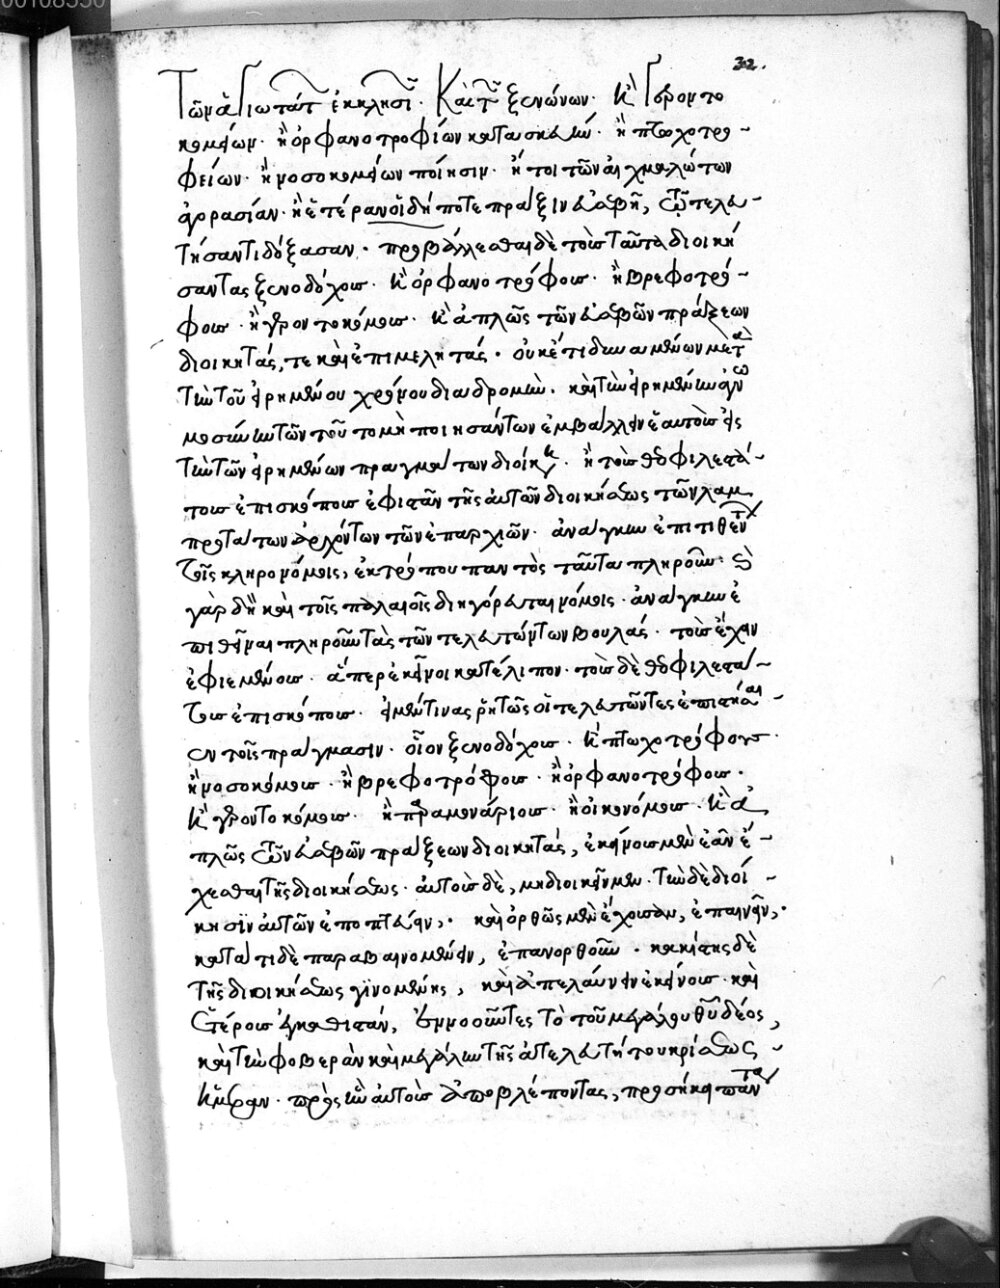 32.
τῶν ἁγιωτάτ ἐκκλησι. Καὶ τ ξενώνων. κ γερόντο
κομείων. ἢ ὀρφανοτροφίων κατασκευήν. ἢ πτωχοτρο-
φείων. ἢ νοσοκομείων ποίησιν. ἤτοι τῶν αἰχμαλώτων
ἀγορασίαν. ἢ ἑτέραν οἵαν δήποτε πρᾶξιν εὐσεβῆ, τῷ τελευ-
τήσαντι δόξασαν. προβάλλεσθαι δὲ τοὺς ταῦτα διοική
σαντας ξενοδόχους. κ ὀρφανοτρόφους. ἢ βρεφοτρό-
φους. ἢ γεροντοκόμους. κ ἁπλῶς τῶν εὐσεβῶν πράξεων
διοικητάς, τε καὶ ἐπιμελητάς. οὐκέτι δυναμένων μετὰ
τὴν τοῦ εἰρημένου χρόνου διαδρομήν. καὶ τὴν εἰρημένην ἀγνω
μοσύνην τῶν τοῦτο μὴ ποιησάντων ἐμβάλλειν ἑαυτοὺς εἰς
τὴν τῶν εἰρημένων πραγμάτων διοίκη. ἢ τοῖς θεοφιλεστά-
τοις ἐπισκόποις ἐφιστᾶν τῆς αὐτῶν διοικήσεως τῶν λαμ
προτάτων ἀρχόντων τῶν ἐπαρχιῶν. ἀνάγκην ἐπιτιθέντ
τοῖς κληρονόμοις, ἐκ τρόπου παντὸς ταῦτα πληροῦν.
γὰρ δὴ καὶ τοῖς παλαιοῖς διηγόρευται νόμοις. ἀνάγκην ἐ
πιθεῖναι πληροῦν τὰς τῶν τελευτώντων βουλάς. τοὺς ἔχειν
ἐφιεμένους. ἅπερ ἐκεῖνοι κατέλιπον. τοὺς δὲ θεοφιλεστά-
τους ἐπισκόπους. εἰ μέν τινας ῥητῶς οἱ τελευτῶντες ἐπιστήσαι-
εν τοῖς πράγμασιν. οἷον ξενοδόχους. κ πτωχοτρόφους.
ἢ νοσοκόμους. ἢ βρεφοτρόφους. ἢ ὀρφανοτρόφους.
κ γεροντοκόμους. ἢ παραμοναρίους. ἢ οἰκονόμους. κ ἁ
πλῶς τῶν εὐσεβῶν πράξεων διοικητάς, ἐκείνους μὲν ἐᾶν ἔ-
χεσθαι τῆς διοικήσεως. αὐτοὺς δὲ, μὴ διοικεῖν μὲν. τὴν δὲ διοί-
κησιν αὐτῶν ἐποπτεύειν,. καὶ ὀρθῶς μὲν ἔχουσαν, ἐπαινεῖν,.
κατά τι δὲ παραβαινομένην, ἐπανορθοῦν. κακίστης δὲ
τῆς διοικήσεως γινομένης, καὶ ἀπελαύνειν ἐκείνους. καὶ
ἑτέρους ἐγκαθιστᾶν, ἐννοοῦντες τὸ τοῦ μεγάλου θῦ δέος,
καὶ τὴν φοβερὰν καὶ μεγάλην τῆς ἀτελευτήτου κρίσεως-
ἡμέραν. πρὸς ἣν αὐτοὺς ἀποβλέποντας, προσήκει πάντα